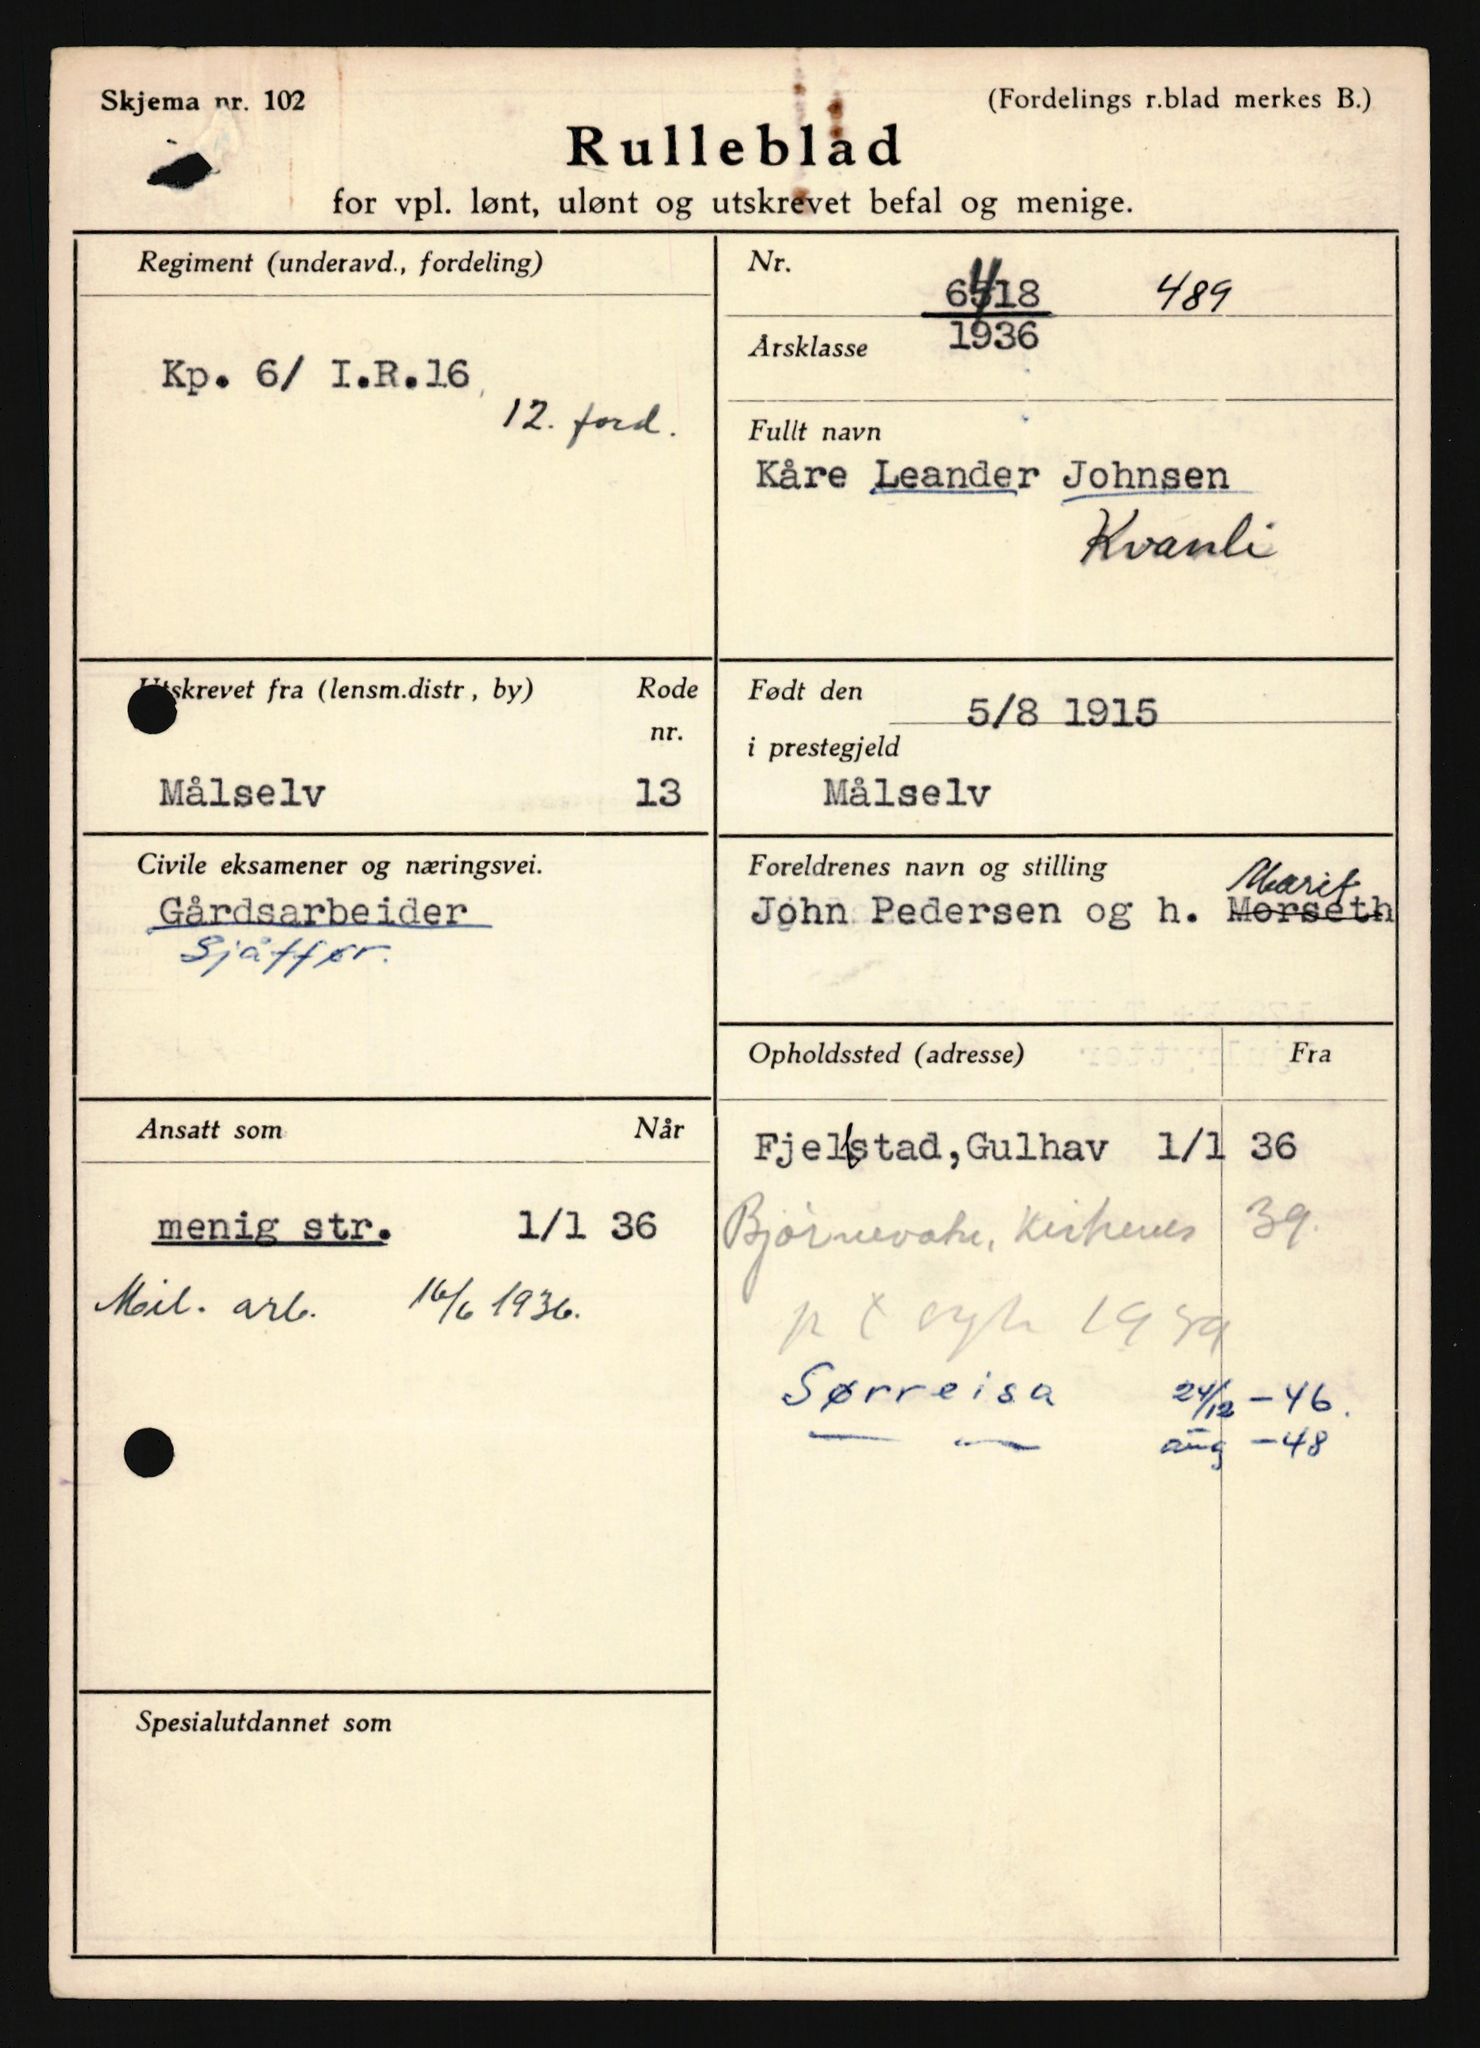 Skjema nr. 102
(Fordelings r.blad merkes B.)
Rulleblad
for vpl. lønt, ulønt og utskrevet befal og menige.
Regiment (underavd., fordeling)
Kp. 6/ I.R.16
12. ford.
Nr.
6418 489
Årsklasse
1936
Fullt navn
Kåre Leander Johnsen
Kvanli
Utskrevet fra (lensm.distr, by) Rode
nr.
Målselv 13
Født den
5/8 1915
i prestegjeld
Målselv
Civile eksamener og næringsvei.
Gårdsarbeider
Sjåffør.
Foreldrenes navn og stilling
Marit
John Pedersen og h. Morseth
Ansatt som Når
menig str. 1/1 36
Mil. arb. 16/6 1936.
Opholdssted (adresse) Fra
Fjelstad,Gulhav 1/1 36
Bjørnevatn, Kirkenes 39.
1939
Sørreisa 24/12 -46.
— — aug -48
Spesialutdannet som